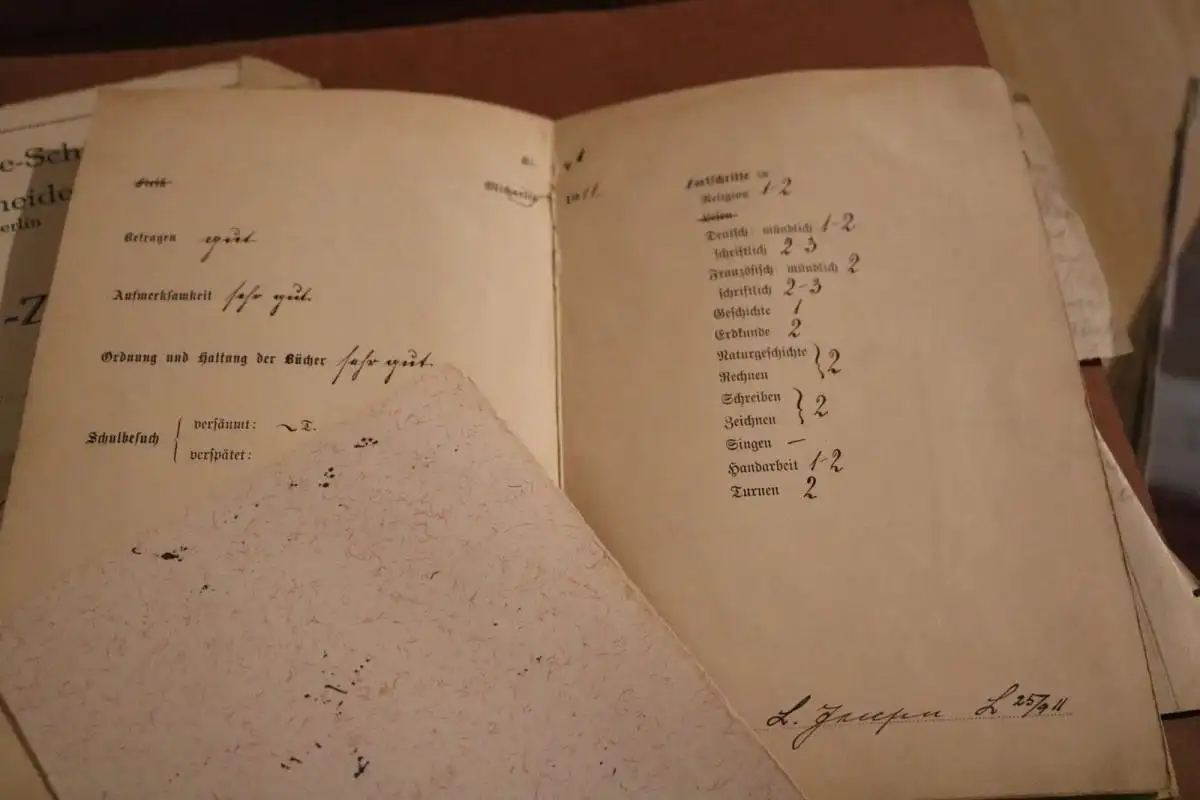 e-Sch
neide
erlin
-Z
Fleiß
Michaelis 1911.
Betragen gut.
Aufmerksamkeit sehr gut.
Ordnung und Haltung der Bücher sehr gut.
Schulbesuch
versäumt: T.
verspätet:
Fortschritte in
Religion 1-2
Lesen
Deutsch: mündlich 1-2
schriftlich 2-3
Französisch: mündlich 2
schriftlich 2-3
Geschichte 1
Erdkunde 2
Naturgeschichte
Rechnen 2
Schreiben
Zeichnen 2
Singen —
Handarbeit 1-2
Turnen 2
L. Jensen L 25/9 11